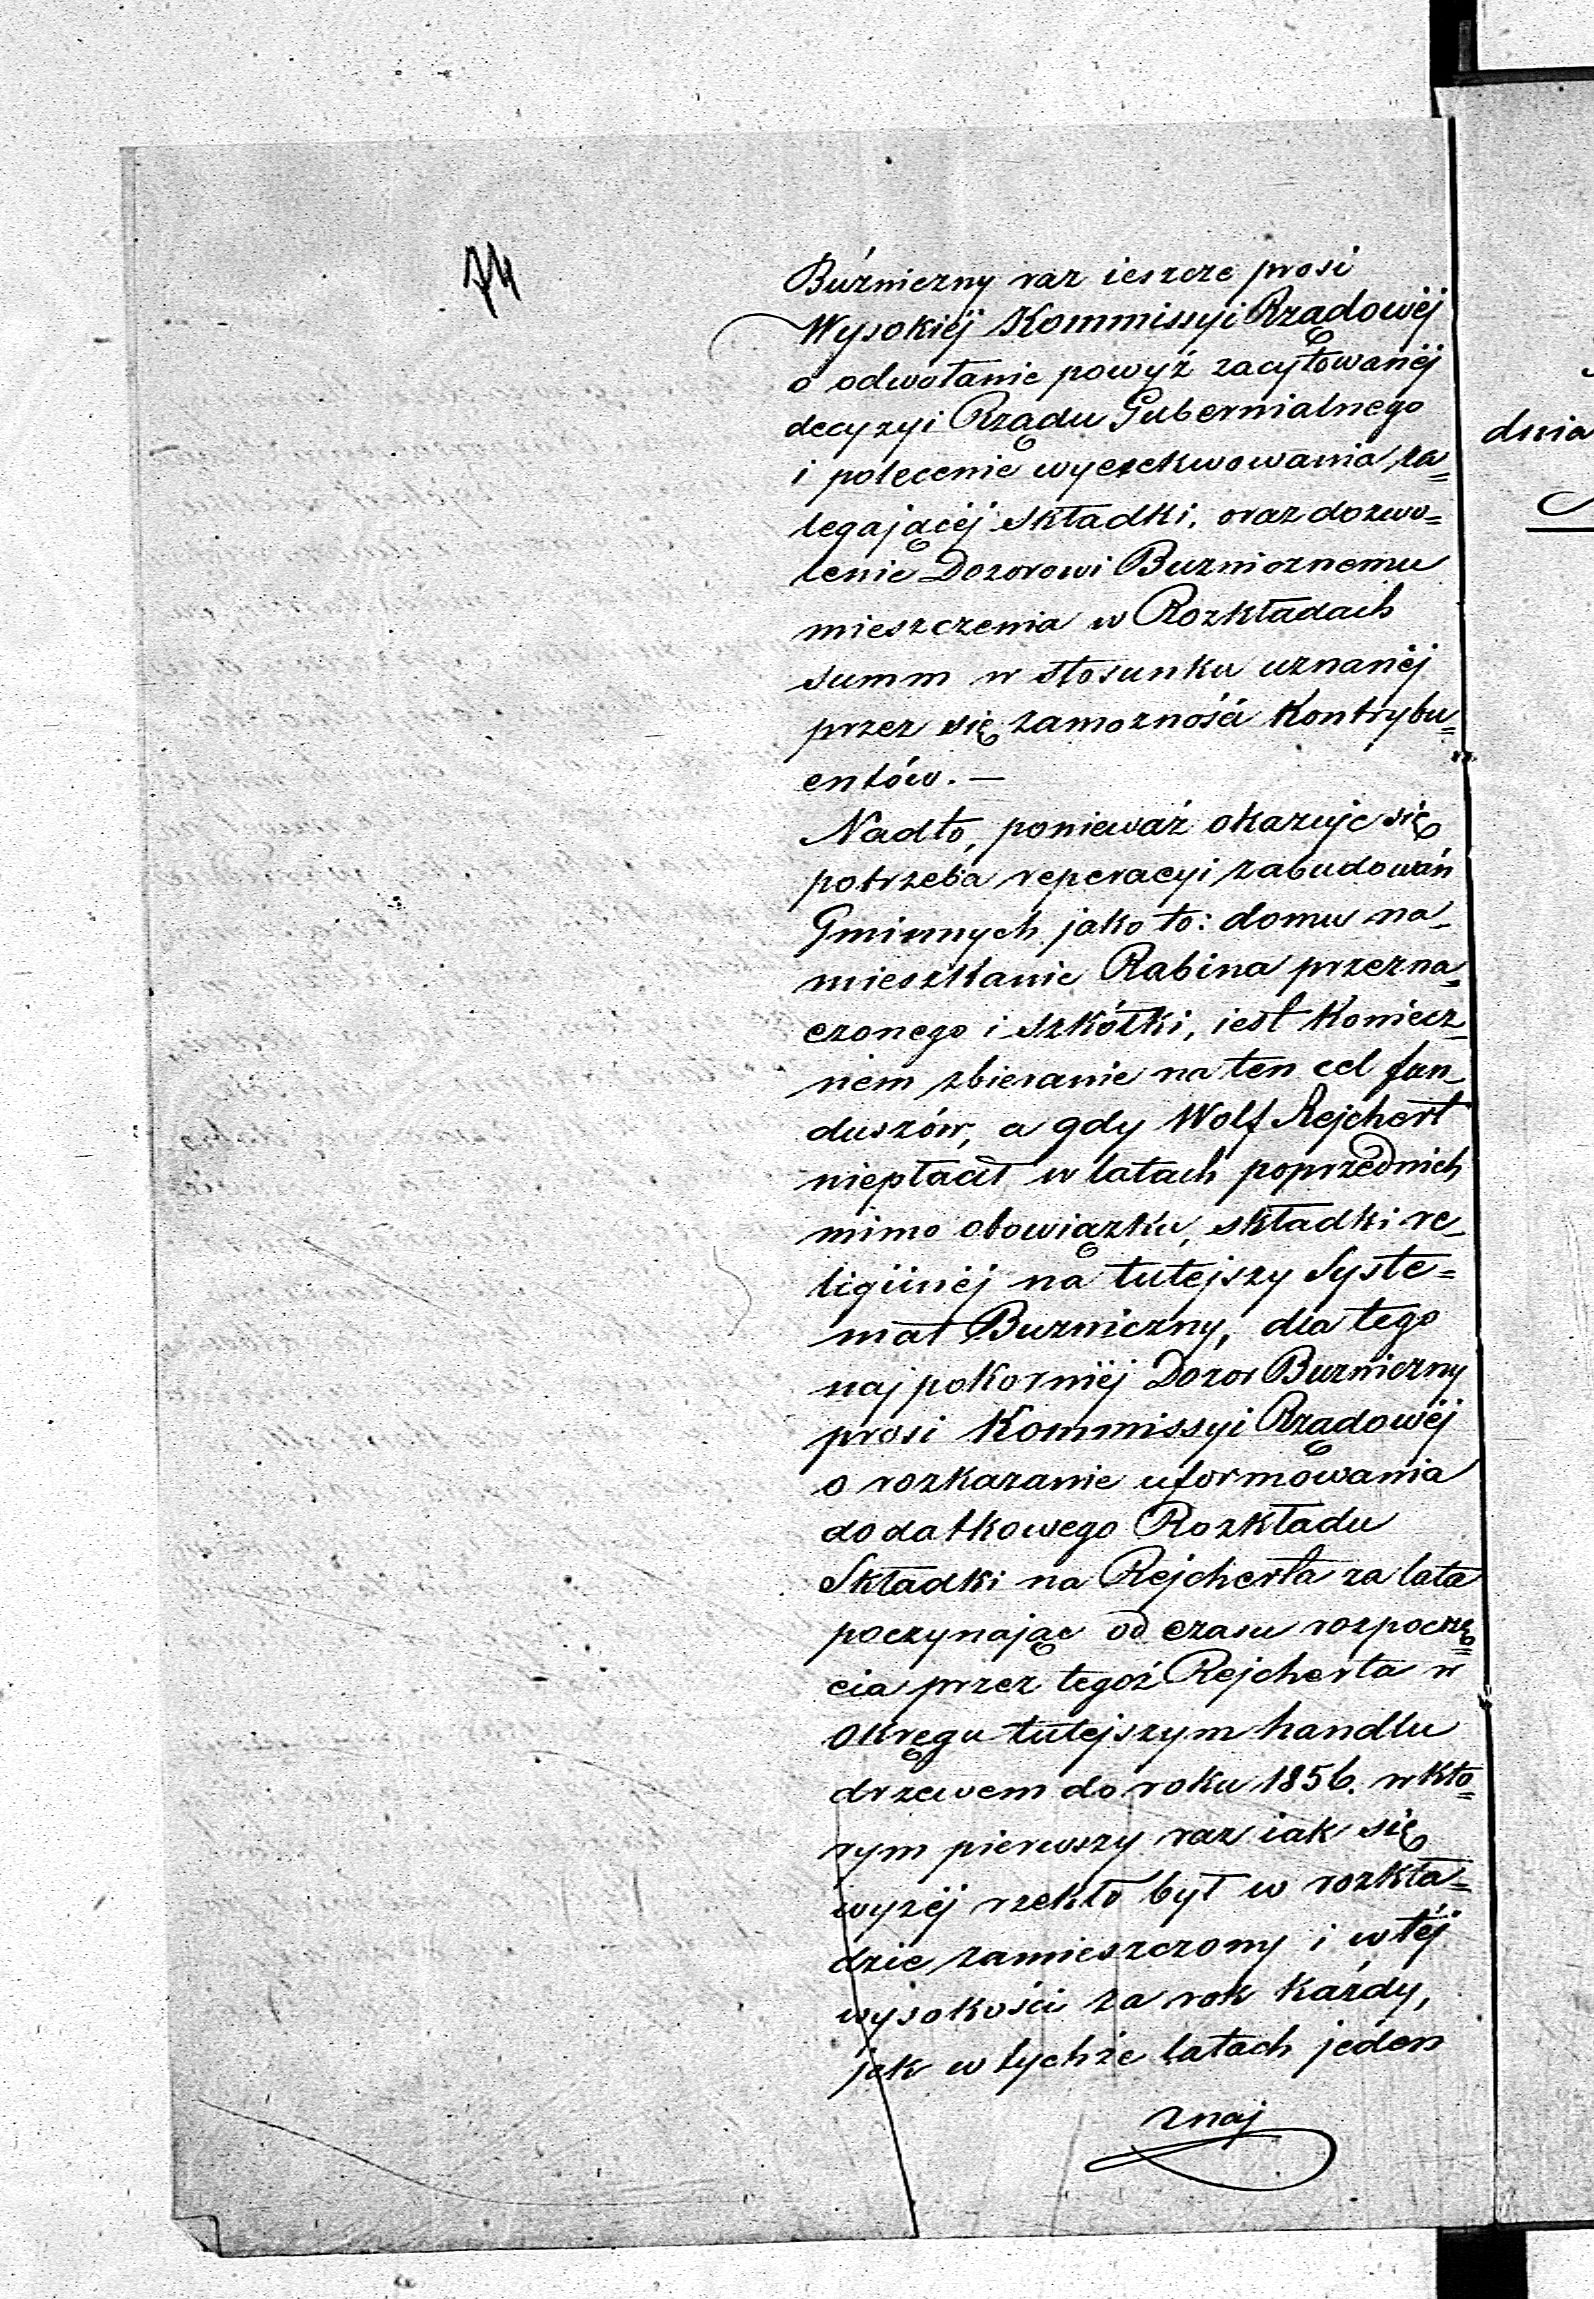 74
Búżniczny raz ieszcze prosi
Wysokiéj Kommissyi Rządowéj
o odwołanie powyż zacytowanéj
decyzyi Rządu Gubernialnego
i polecenie wyexekwowania za=
legającéj składki, oraz dozwo=
lenie Dozorowi Buznicznemu
mieszczenia w Rozkładach
summ w stosunku uznanéj
przez się zamozności Kontrybu=
entów. —
Nadto, ponieważ okazuje się
potrzeba reperacyi zabudowań
Gminnych jako to: domu na-
mieszkanie Rabina przezna=
czonego i szkółki, iest koniecz-
nem zbieranie na ten cel fun-
duszów, a gdy Wolf Rejchert
niepłacił w latach poprzednich
mimo obowiązku, składki re-
ligiinéj na tutejszy Syste=
mat Buzniczny, dla tego
najpokorniéj Dozor Buzniczny
prosi Kommissyi Rządowéj
o rozkazanie uformowania
dodatkowego Rozkładu
Składki na Rejcherta za lata
poczynając od czasu rozpoczę=
cia przez tegoż Rejcherta w
Okręgu tutejszym handlu
drzewem do roku 1856. w któ=
rym pierwszy raz iak się
wyzéj rzekło był w rozkła=
dzie zamieszczony i w téj
wysokości za rok każdy,
jak w tychże latach jeden
znaj
dnia